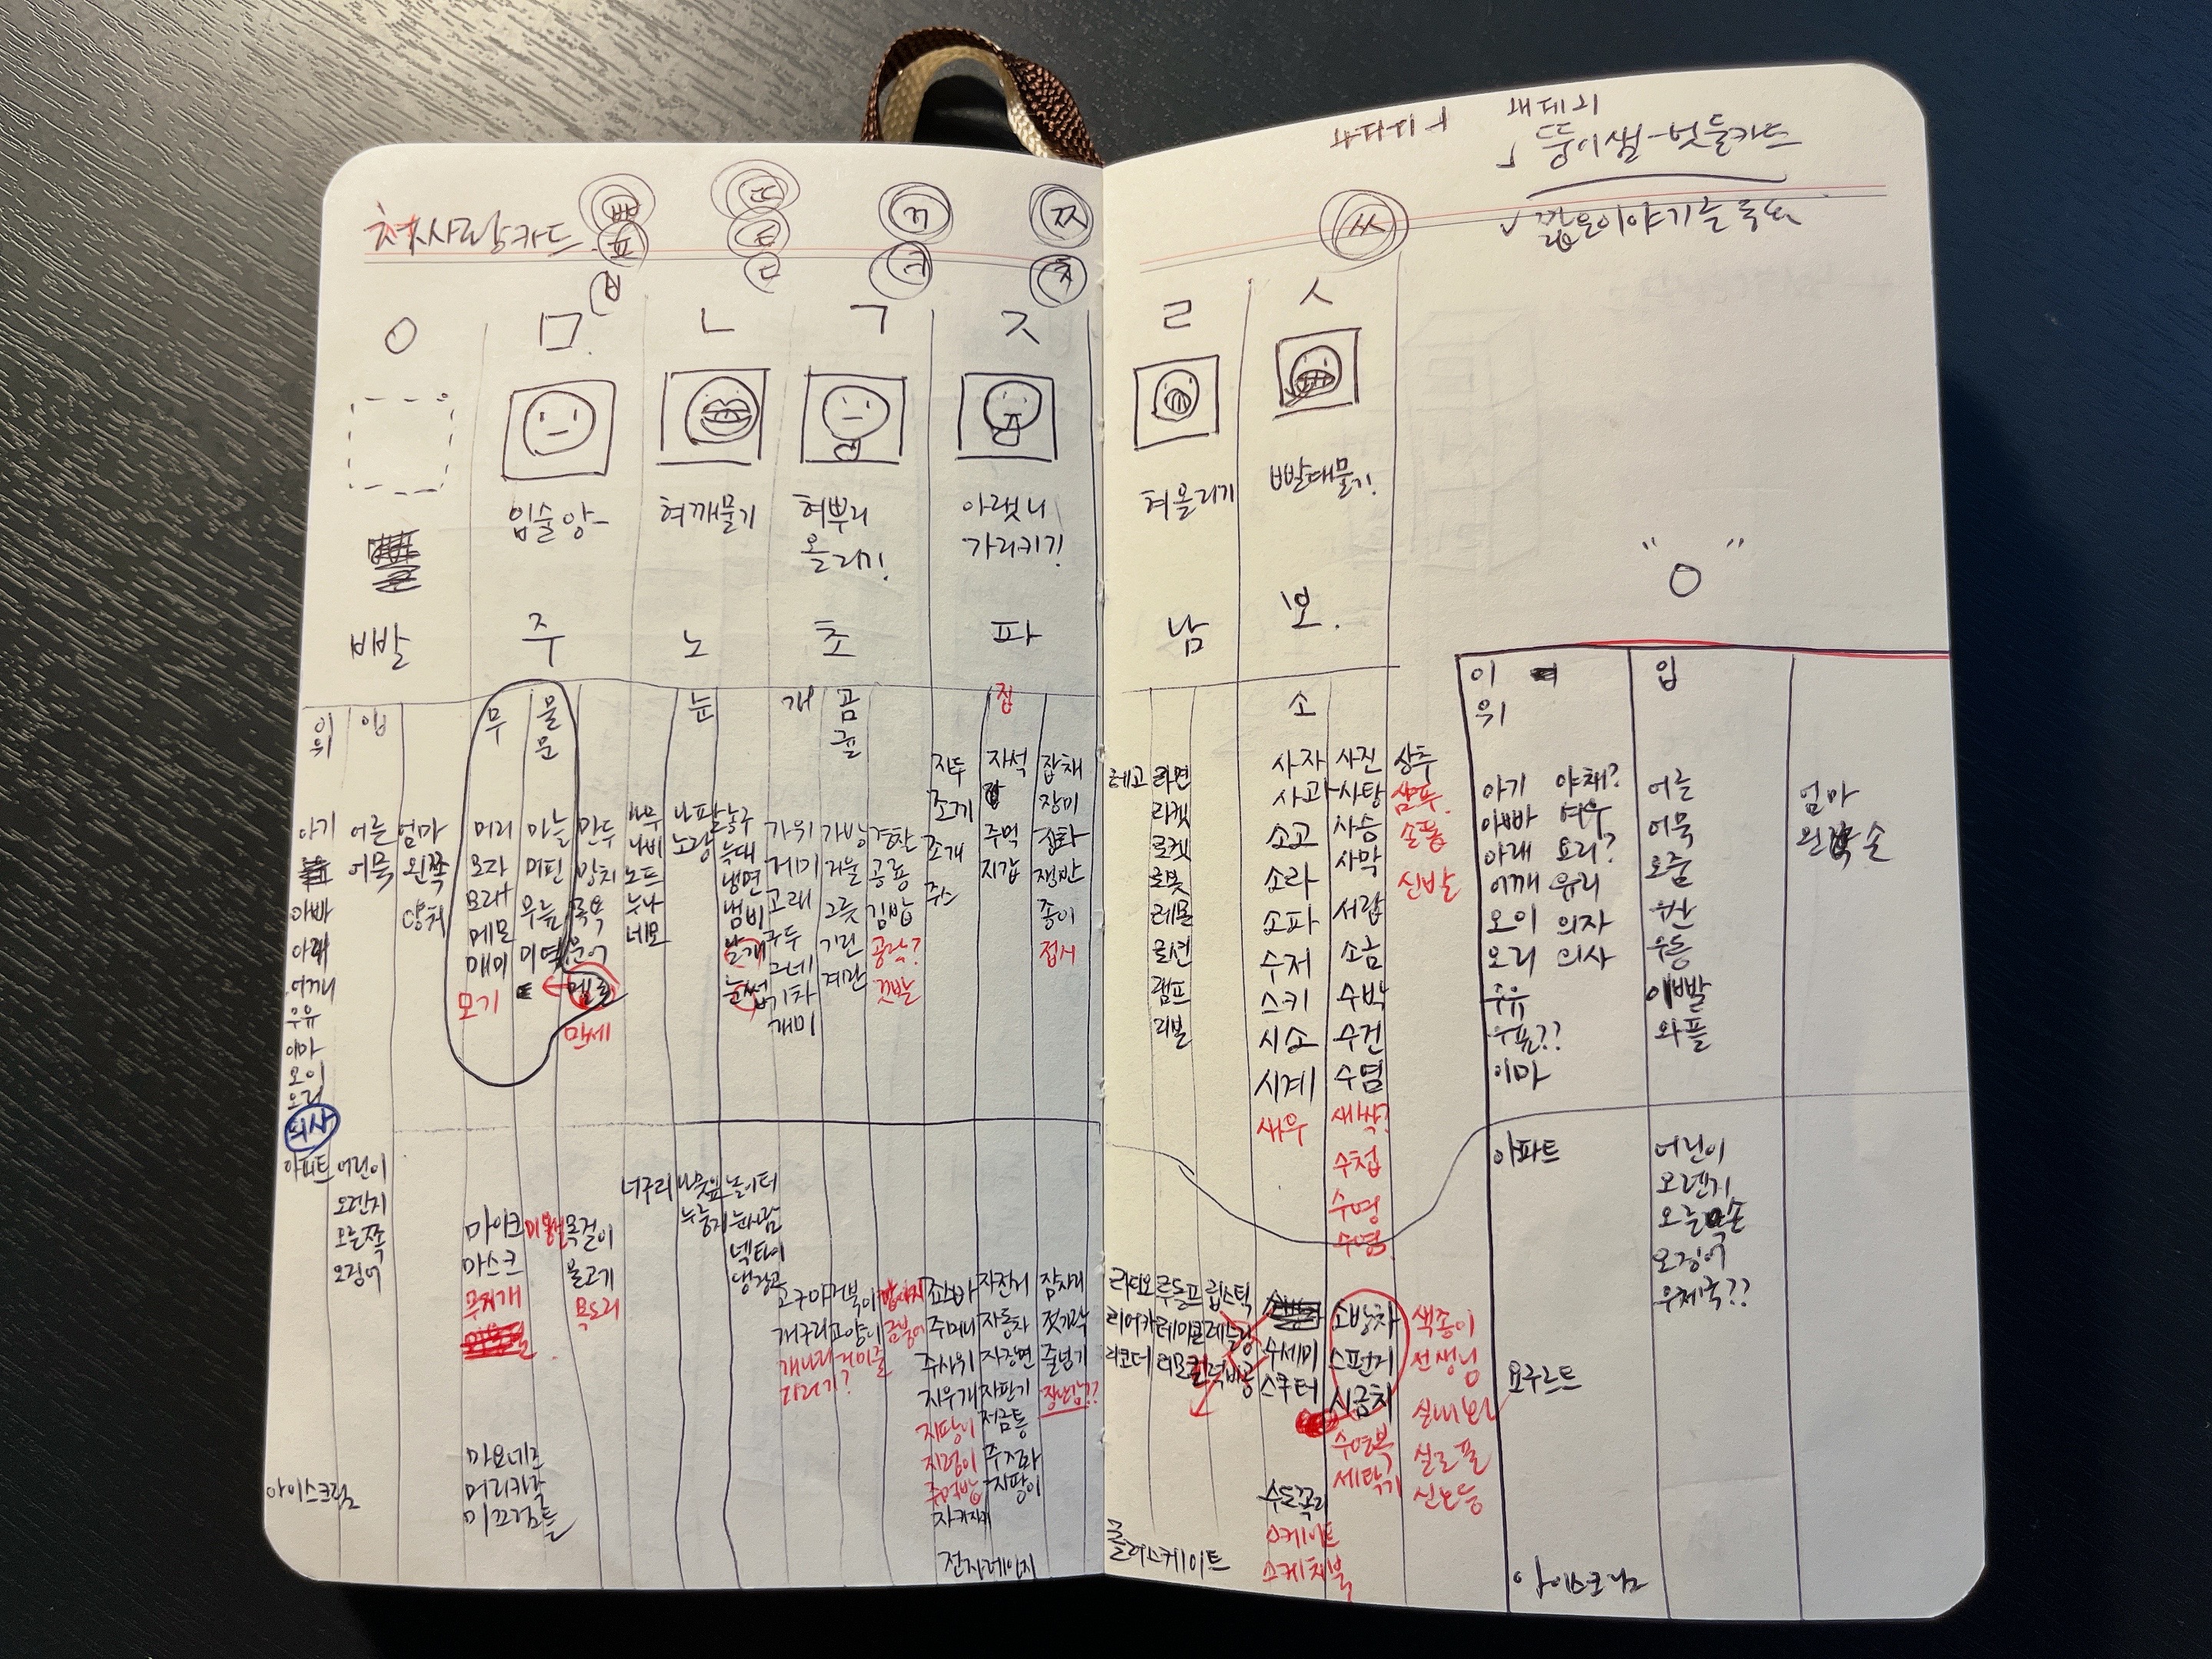 첫사랑카드
ㅃ ㄸ ㄲ ㅉ
ㅍ ㅌ ㅋ ㅊ
ㅂ ㄷ
ㅇ ㅁ ㄴ ㄱ ㅈ
입술앙- 혀깨물기 혀뿌리 올리기! 아랫니 가리키기!
빨 주 노 초 파
이 입 무 물 눈 개 곰 집
위 문 귤
아기 어른 엄마
어묵 왼쪽
아빠 양치
아래
어깨
우유
이마
오이
오리
의사
머리 마늘 만두
모자 머핀 망치
모래 무늪 목욕
메모 미역 문어
매미 멜론
모기 만세
나무 나팔 농구
나비 노랑 늑대
노트 냉면
누나 냄비
네모 날개
눈썹
가위 가방 계란
거미 거울 공룡
고래 그릇 김밥
구두 기린 공락?
그네 계란 깃발
기차
개미
자두 자석 잡채
조끼 장미
조개 주먹 전화
주스 지갑 쟁반
종이
접시
아파트 어린이
오렌지
오른쪽
오징어
아이스크림
마이크 목걸이
마스크 불고기
무지개 목도리
마요네즈
머리카락
미끄럼틀
너구리 나뭇잎 놀이터
누룽지 눈사람
넥타이
냉장고
고구마 거북이
개구리 고양이 금붕어
개나리 거미줄
기러기?
자전거 잠자리
주머니 자동차 젓가락
주사위 자장면 줄넘기
지우개 자판기 장난감??
지팡이 저금통
지렁이
주먹밥 지팡이
전자레인지
뚱이샘-벗들카드
ㅆ
ㄹ ㅅ
혀올리기 빨대물기!
남 보.
소
레고 라면
라켓
로켓
로봇
레몬
로션
램프
리본
사자 사진 상추
사과 사탕 샴푸
소고 사슴 손톱
소라 사막 신발
소파 서랍
수저 소금
스키 수박
시소 수건
시계 수염
새우 새싹?
수첩
수영
라디오 루돌프 립스틱
리어카 레미콘 레슬링
리코더 리모컨 럭비공
수세미
스쿠터
소방차 색종이
스펀지 선생님
시금치
수영복 실로폰
세탁기 신호등
수도꼭지
스케이트
스케치북
롤러스케이트
" ㅇ "
이 입
위
아기 야채? 어른 엄마
아빠 여우 어묵 왼쪽 손
아래 요리? 오줌
어깨 유리 우산
오이 의자 우동
오리 의사 이빨
우유 와플
우표??
이마
아파트 어린이
오렌지
오른쪽손
오징어
우체국??
요구르트
아이스크림